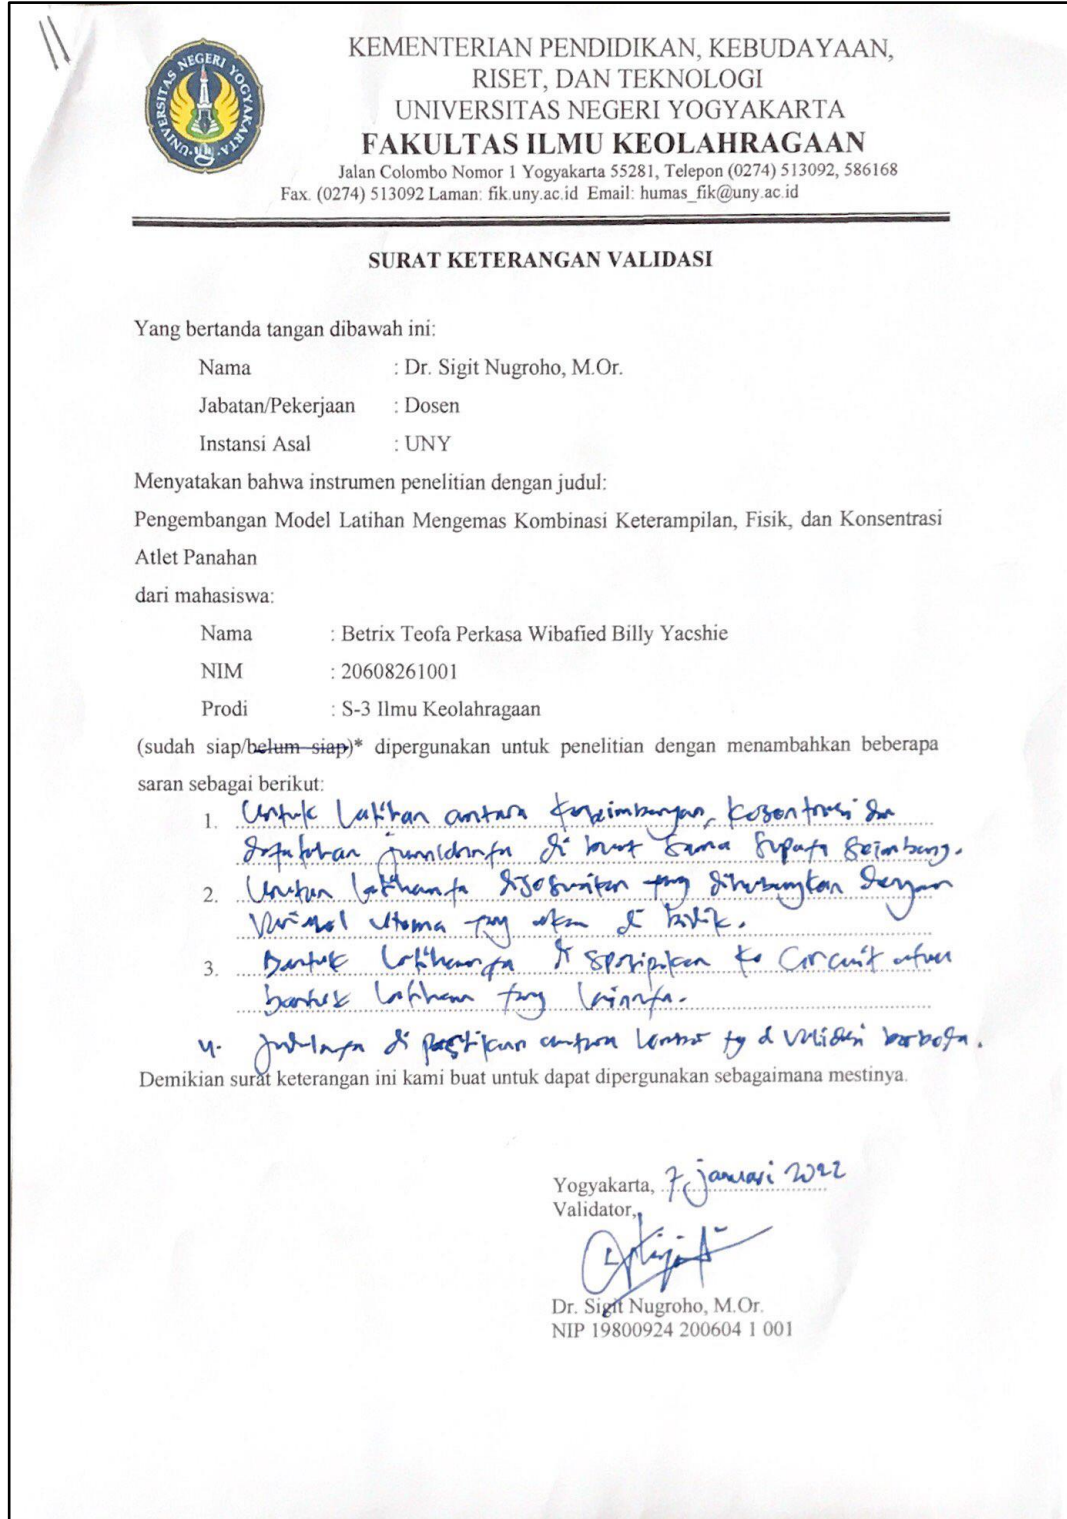 UNIVERSITAS NEGERI YOGYAKARTA
KEMENTERIAN PENDIDIKAN, KEBUDAYAAN,
RISET, DAN TEKNOLOGI
UNIVERSITAS NEGERI YOGYAKARTA
FAKULTAS ILMU KEOLAHRAGAAN
Jalan Colombo Nomor 1 Yogyakarta 55281, Telepon (0274) 513092, 586168
Fax. (0274) 513092 Laman: fik.uny.ac.id Email: humas_fik@uny.ac.id
SURAT KETERANGAN VALIDASI
Yang bertanda tangan dibawah ini:
Nama : Dr. Sigit Nugroho, M.Or.
Jabatan/Pekerjaan : Dosen
Instansi Asal : UNY
Menyatakan bahwa instrumen penelitian dengan judul:
Pengembangan Model Latihan Mengemas Kombinasi Keterampilan, Fisik, dan Konsentrasi
Atlet Panahan
dari mahasiswa:
Nama : Betrix Teofa Perkasa Wibafied Billy Yacshie
NIM : 20608261001
Prodi : S-3 Ilmu Keolahragaan
(sudah siap/belum siap)* dipergunakan untuk penelitian dengan menambahkan beberapa
saran sebagai berikut:
1. Untuk latihan antara keseimbangan,
di buat sama supaya seimbang.
2. Urutan latihannya disesuaikan yang dihubungkan dengan
utama yang akan di
3. Bentuk latihannya di ke Circuit atau
bentuk latihan yang lainnya.
4. Judulnya di pastikan antara
Demikian surat keterangan ini kami buat untuk dapat dipergunakan sebagaimana mestinya.
Yogyakarta, 7 januari 2022
Validator,
Dr. Sigit Nugroho, M.Or.
NIP 19800924 200604 1 001